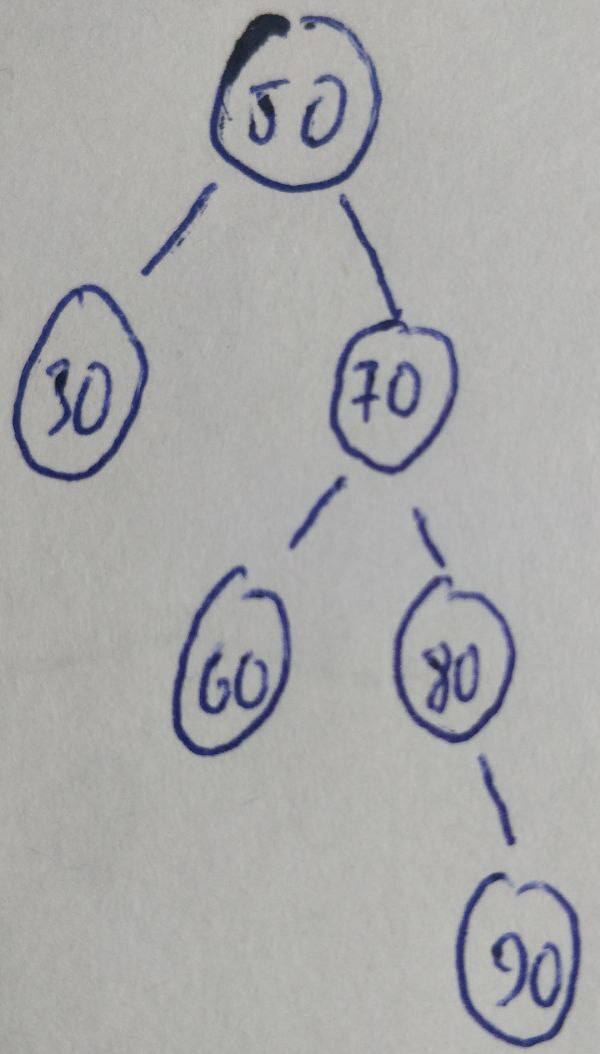 50
30 70
60 80
90